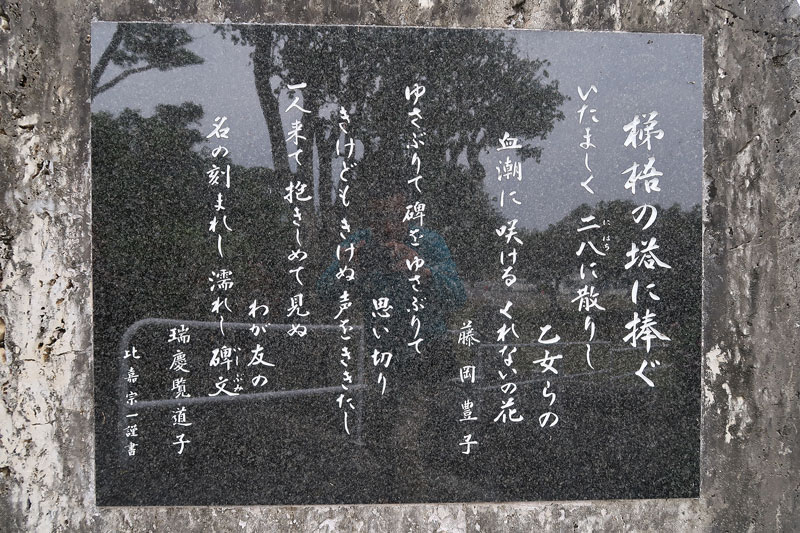 梯梧の塔に捧ぐ
いたましく 二八に散りし
にはち
乙女らの
血潮に咲ける くれないの花
藤岡豊子
ゆさぶりて碑をゆさぶりて
思い切り
きけどもきけぬ声をききたし
一人来て 抱きしめて見ぬ
わが友の
名の刻まれし 濡れし碑文
いしぶみ
瑞慶覧道子
比嘉宗一謹書